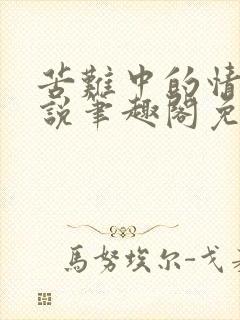 苦難中的情
説筆趣閣免
馬努埃尔-戈